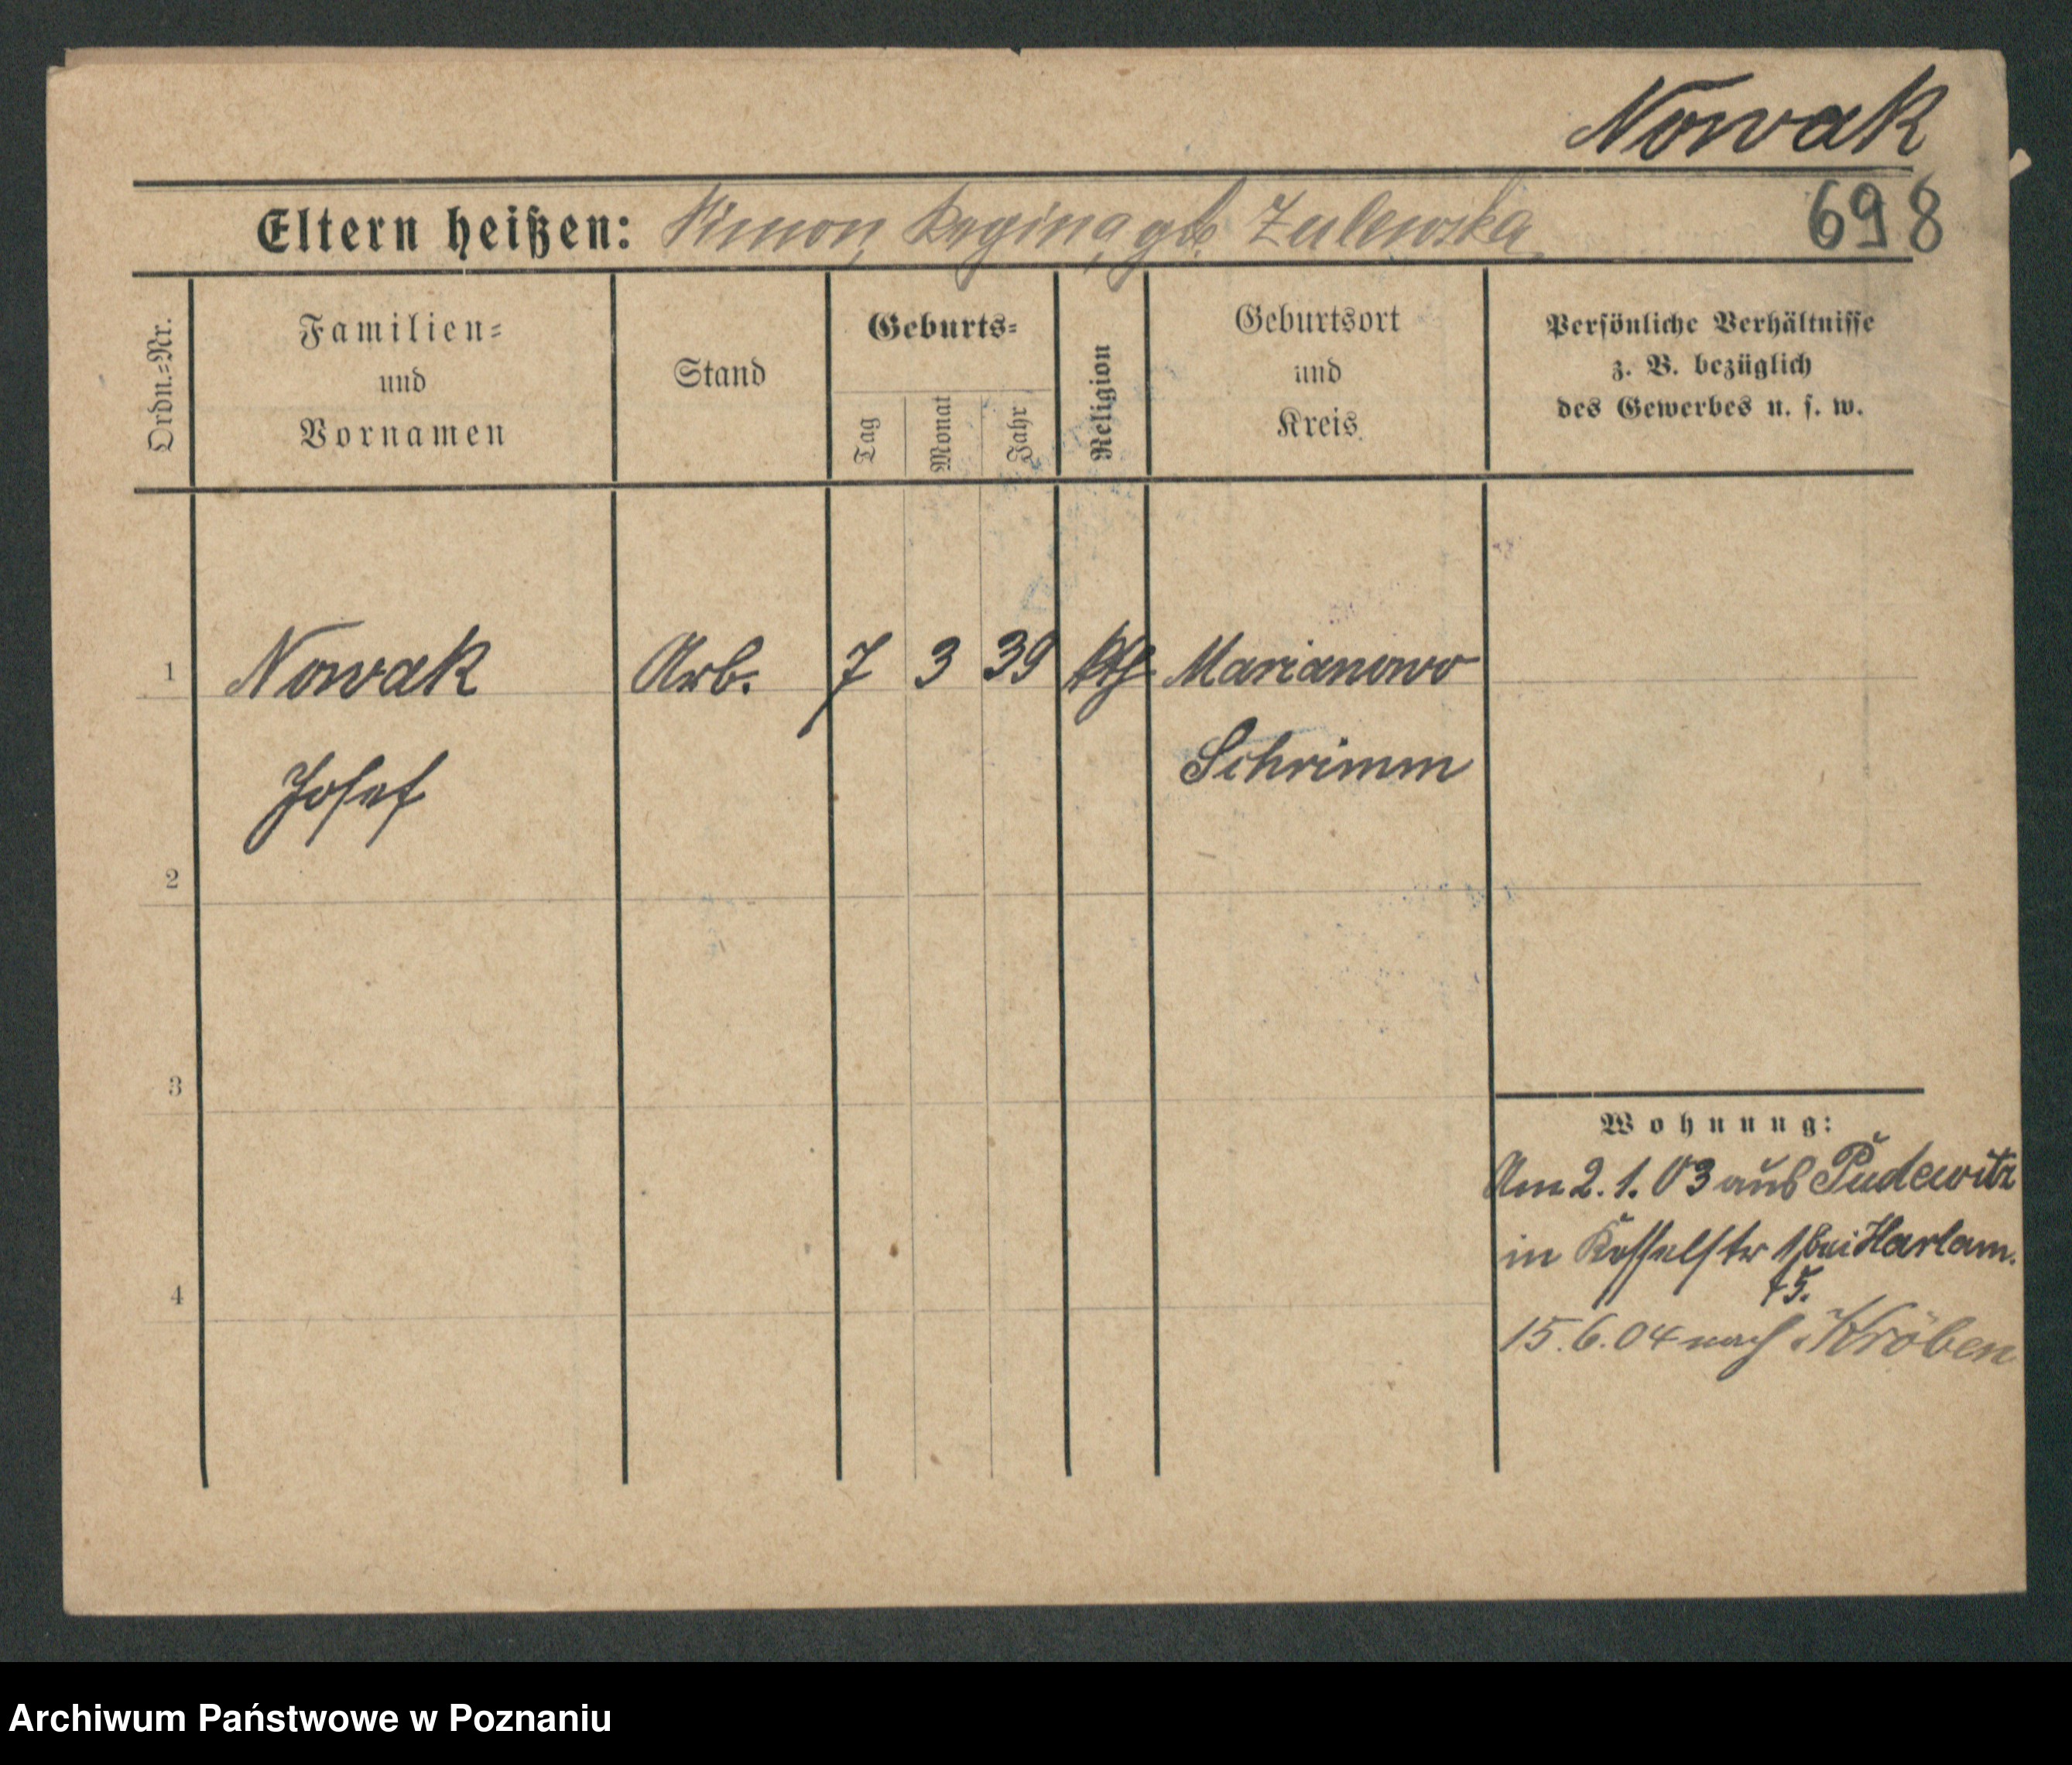 Nowak
698
Eltern heißen: Simon, Regina, gb. Zulewska
Ordn.=Nr.
Familien=
und
Vornamen
Stand
Geburts=
Tag
Monat
Jahr
Religion
Geburtsort
und
Kreis
Persönliche Verhältnisse
z. B. bezüglich
des Gewerbes u. s. w.
1 Nowak Arb. 7 3 39 kth Marianowo
Josef Schrimm
2
3
4
Wohnung:
Am 2. 1. 03 aus Pudewitz
in Kesselstr 1 bei Harlam.
15. 6. 04 nach Kröben
Archiwum Państwowe w Poznaniu